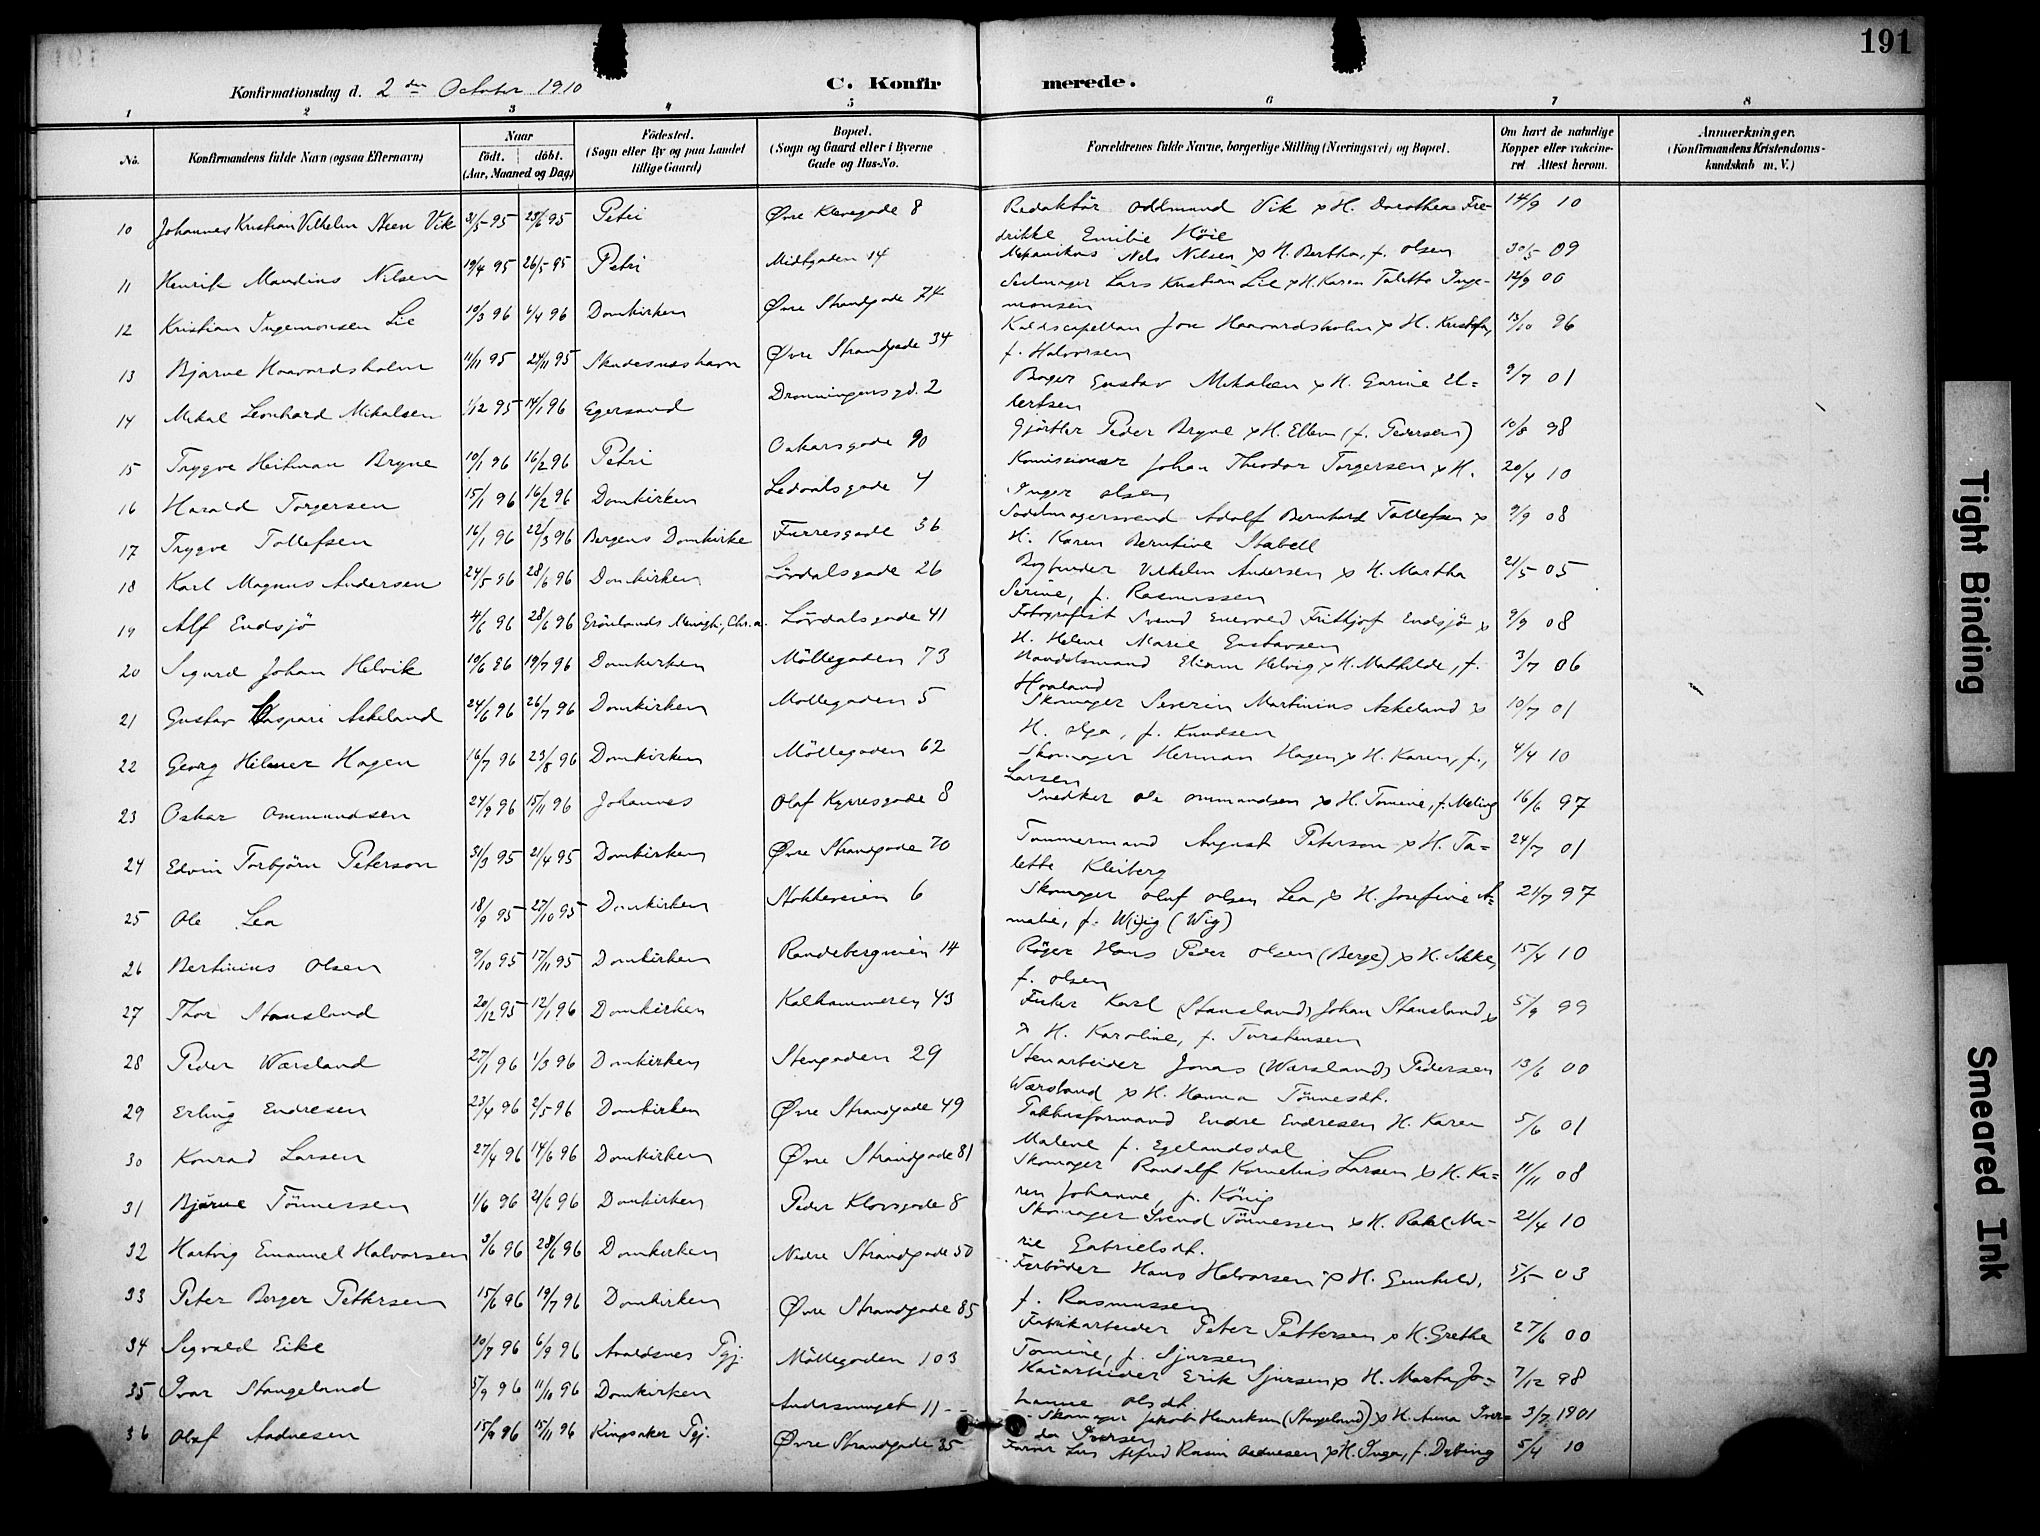 191
Konfirmationsdag d. 2den October 1910
C. Konfirmerede.
1 2 3 4 5 6 7 8
No. Konfirmandens fulde Navn (ogsaa Efternavn) Naar födt. döbt. (Aar, Maaned og Dag) Födested. (Sogn eller By og paa Landet tillige Gaard) Bopæl. (Sogn og Gaard eller i Byerne Gade og Hus-No. Forældrenes fulde Navne, borgerlige Stilling (Næringsvei) og Bopæl. Om havt de naturlige Kopper eller vakcineret Attest herom. Anmærkninger. (Konfirmandens Kristendomskundskab m. V.)
10 Johannes Kristian Vilhelm Steen Vik 31/5 95 23/6 95 Petri Øvre Klevegade 8 Redaktör Oddmund Vik & H. Dorothea Fredrikke Emilie Höie 14/9 10
11 Henrik Maudius Nilsen 19/4 95 26/5 95 Petri Midtgaden 14 Mekanikus Nels Nilsen & H. Bertha, f. Olsen 30/5 09
12 Kristian Ingemonsen Lie 10/3 96 6/4 96 Domkirken Øvre Strandgade 74 Seilmager Lars Kristian Lie & H. Karen Taletta Ingemonsen 12/9 00
13 Bjarne Haavardsholm 11/11 95 24/11 95 Skudesneshavn Øvre Strandgade 34 Kaldscapellan Jon Haavardsholm & H. f. Halvorsen 13/10 96
14 Mikal Leonhard Mikalsen 1/12 95 14/1 96 Egersund Dronningensgd. 2 Bager Gustav Mikalsen & H. Gurine Elbertsen 9/7 01
15 Trygve Heitman Bryne 10/1 96 16/2 96 Petri Oskarsgade 90 Gjörtler Peder Bryne & H. Ellen (f. Pedersen) 10/8 98
16 Harald Torgersen 15/1 96 16/2 96 Domkirken Ledaalsgade 4 Komissionær Johan Theodor Torgersen & H. Inger Olsen 20/4 10
17 Trygve Tollefsen 16/1 96 22/3 96 Bergens Domkirke Furresgade 36 Sadelmagersvend Adolf Bernhard Tollefsen & H. Karen Berntine Stabell 9/9 08
18 Karl Magnus Andersen 24/5 96 28/6 96 Domkirken Lövdalsgade 26 Bogbinder Vilhelm Andersen & H. Martha Serine, f. Rasmussen 21/5 05
19 Alf Endsjö 4/6 96 28/6 96 Grönlands Menigh., Chr.a. Lövdalsgade 41 Fotografist Svend Enevold Frithjof Endsjö & H. Helene Marie Gustavsen 9/9 08
20 Sigurd Johan Helvik 10/6 96 19/7 96 Domkirken Möllegaden 73 Handelsmand Elian Helvig & H. Mathilde, f. Haaland 3/7 06
21 Gustav Kaspari Askeland 24/6 96 26/7 96 Domkirken Möllegaden 5 Skomager Severin Martinius Askeland & H. Olga, f. Knudsen 10/7 01
22 Georg Hilmer Hagen 16/7 96 23/8 96 Domkirken Möllegaden 62 Skomager Herman Hagen & H. Karen, f., Larsen 4/4 10
23 Oskar Ommundsen 24/9 96 15/11 96 Johannes Olaf Kyrresgade 8 Snedker Ole Ommundsen & H. Tomine, f. Meling 16/6 97
24 Edvin Torbjörn Peterson 31/3 95 21/4 95 Domkirken Øvre Strandgade 70 Tømmermand August Peterson & H. Talette Kleiberg 24/7 01
25 Ole Lea 18/9 95 27/10 95 Domkirken Stokkeveien 6 Skomager Oluf Olsen Lea & H. Josefine Amalie, f. W(i)ig (Wig) 21/7 97
26 Bertinius Olsen 9/10 95 17/11 95 Domkirken Randebergveien 14 Röger Hans Peder Olsen (Berge) & H. f. Olsen 15/4 10
27 Thor Stausland 20/12 95 12/1 96 Domkirken Kalhammeren 43 Fisker Karl (Stausland) Johan Stausland & H. Karoline, f. Torstensen 5/9 99
28 Peder Warsland 27/1 96 1/3 96 Domkirken Stengaden 29 Stenarbeider Jonas (Warsland) Pedersen Warsland & H. Hanna Tönnesdt. 13/6 00
29 Erling Endresen 23/4 96 2/5 96 Domkirken Øvre Strandgade 49 Pakhusformand Endre Endresen H. Karen Malene f. Egelandsdal 5/6 01
30 Konrad Larsen 27/4 96 14/6 96 Domkirken Øvre Strandgade 81 Skomager Randulf Kornelius Larsen & H. Karen Johanne, f. König 11/11 08
31 Bjarne Tönnessen 1/6 96 21/6 96 Domkirken Peder Klovsgade 8 Skomager Svend Tönnessen & H. Rakel Marie Gabrielsdt. 21/4 10
32 Hartvig Emanuel Halvorsen 3/6 96 28/6 96 Domkirken Nedre Strandgade 50 Hans Halvorsen & H. Gunhild, f. Rasmussen 5/5 03
33 Peter Berger Pettersen 15/6 96 19/7 96 Domkirken Øvre Strandgade 85 Fabrikarbeider Peter Pettersen & H. Grethe Tomine, f. Sjursen 27/6 00
34 Sigvald Eike 10/7 96 6/9 96 Avaldsnes Pgj. Möllegaden 103 Kaiarbeider Erik Sjursen & H. Marta Johanne Olsdt. 7/12 98
35 Ivar Stangeland 5/9 96 11/10 96 Domkirken 11 Skomager Jakob Henriksen (Stangeland) & H. Anna Iversen 3/7 1901
36 Olaf Aadnesen 15/9 96 15/11 96 Ringsaker Pgj. Øvre Strandgade 35 Farver Lars Alfred Rasin Aadnesen & H. Inga, f. Dybing 5/4 10
Tight Binding
Smeared Ink